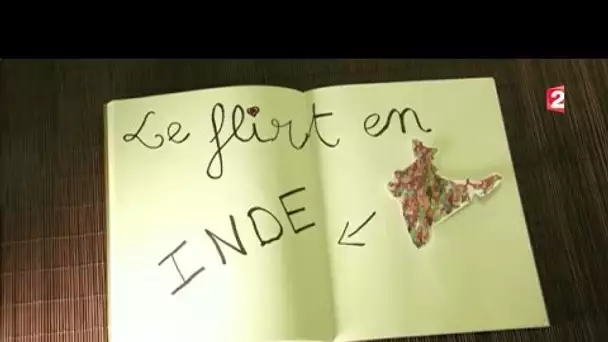 Le flirt en
INDE
2